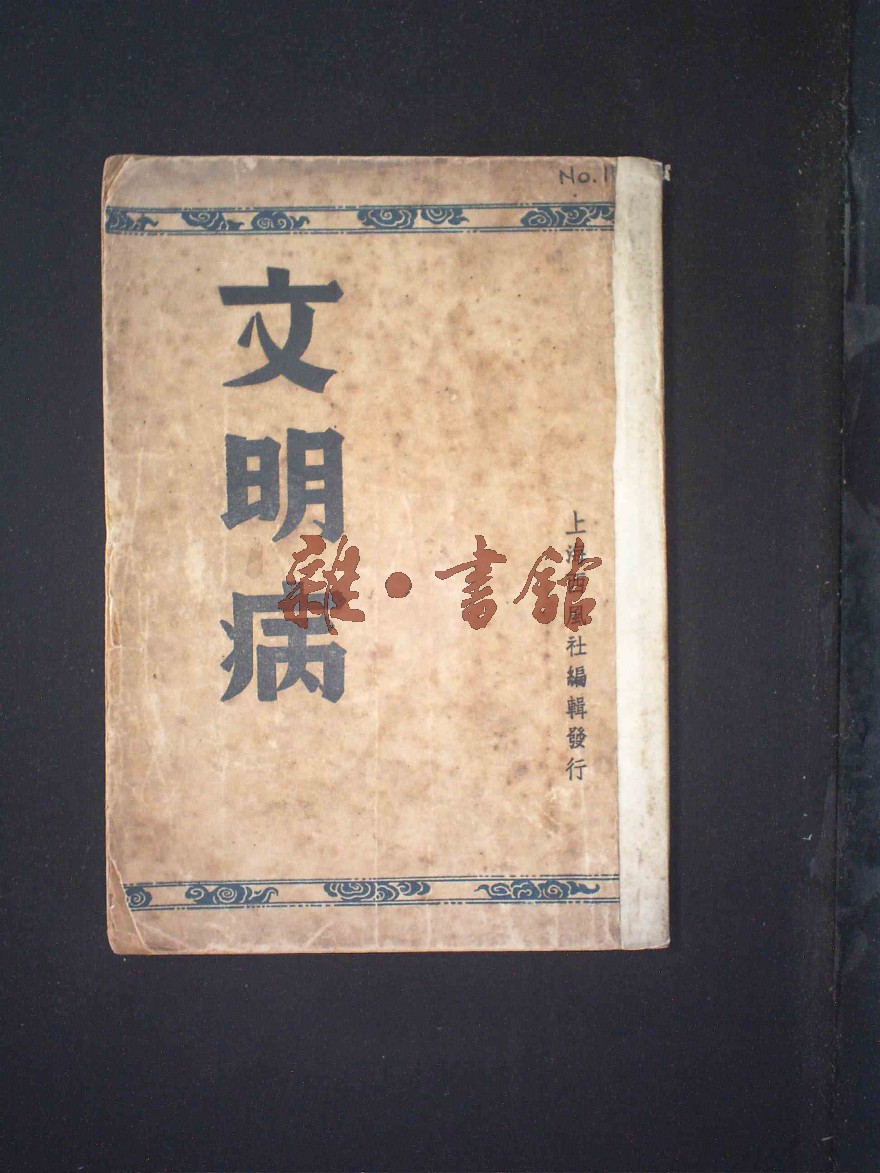 No.1
文明病
上海西風社編輯發行
雜·書館